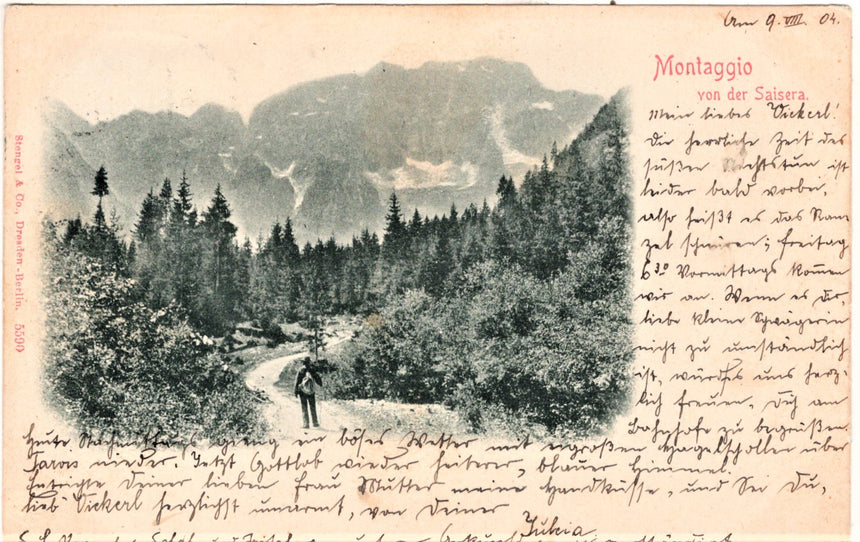 Am 9. VIII. 04.
Montaggio
von der Saisera.
Stengel & Co., Dresden-Berlin. 5590
Mein liebes Vickerl!
Die herrliche Zeit des
süßen Nichtstun ist
leider bald vorbei,
also heißt es das Ran-
zel schnüren; Freitag
6 30 Vormittags kom̄en
wir an. Wenn es Dir,
liebe kleine Schwägerin
nicht zu umständlich
ist, würdes uns herz-
lich freuen, Dich am
Bahnhofe zu begrüßen.
Heute Nachmittags gieng ein böses Wetter mit eigroßen Hagelschollen über
Tarvis nieder. Jetzt Gottlob wieder heiterer, blauer Himmel.
Entrichte Deiner lieben Frau Mutter meine Handküsse, und Sei Du,
lieb Vickerl herzlichst umarmt, von Deiner
Julcia